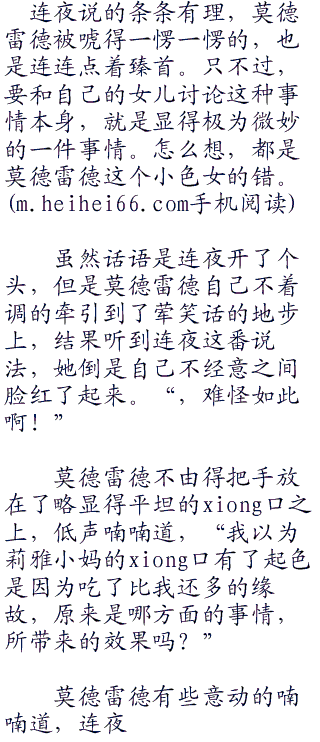 连夜说的条条有理，莫德
雷德被唬得一愣一愣的，也
是连连点着臻首。只不过，
要和自己的女儿讨论这种事
情本身，就是显得极为微妙
的一件事情。怎么想，都是
莫德雷德这个小色女的错。
(m.heihei66.com手机阅读)
虽然话语是连夜开了个
头，但是莫德雷德自己不着
调的牵引到了荤笑话的地步
上，结果听到连夜这番说
法，她倒是自己不经意之间
脸红了起来。“，难怪如此
啊！”
莫德雷德不由得把手放
在了略显得平坦的xiong口之
上，低声喃喃道，“我以为
莉雅小妈的xiong口有了起色
是因为吃了比我还多的缘
故，原来是哪方面的事情，
所带来的效果吗？”
莫德雷德有些意动的喃
喃道，连夜